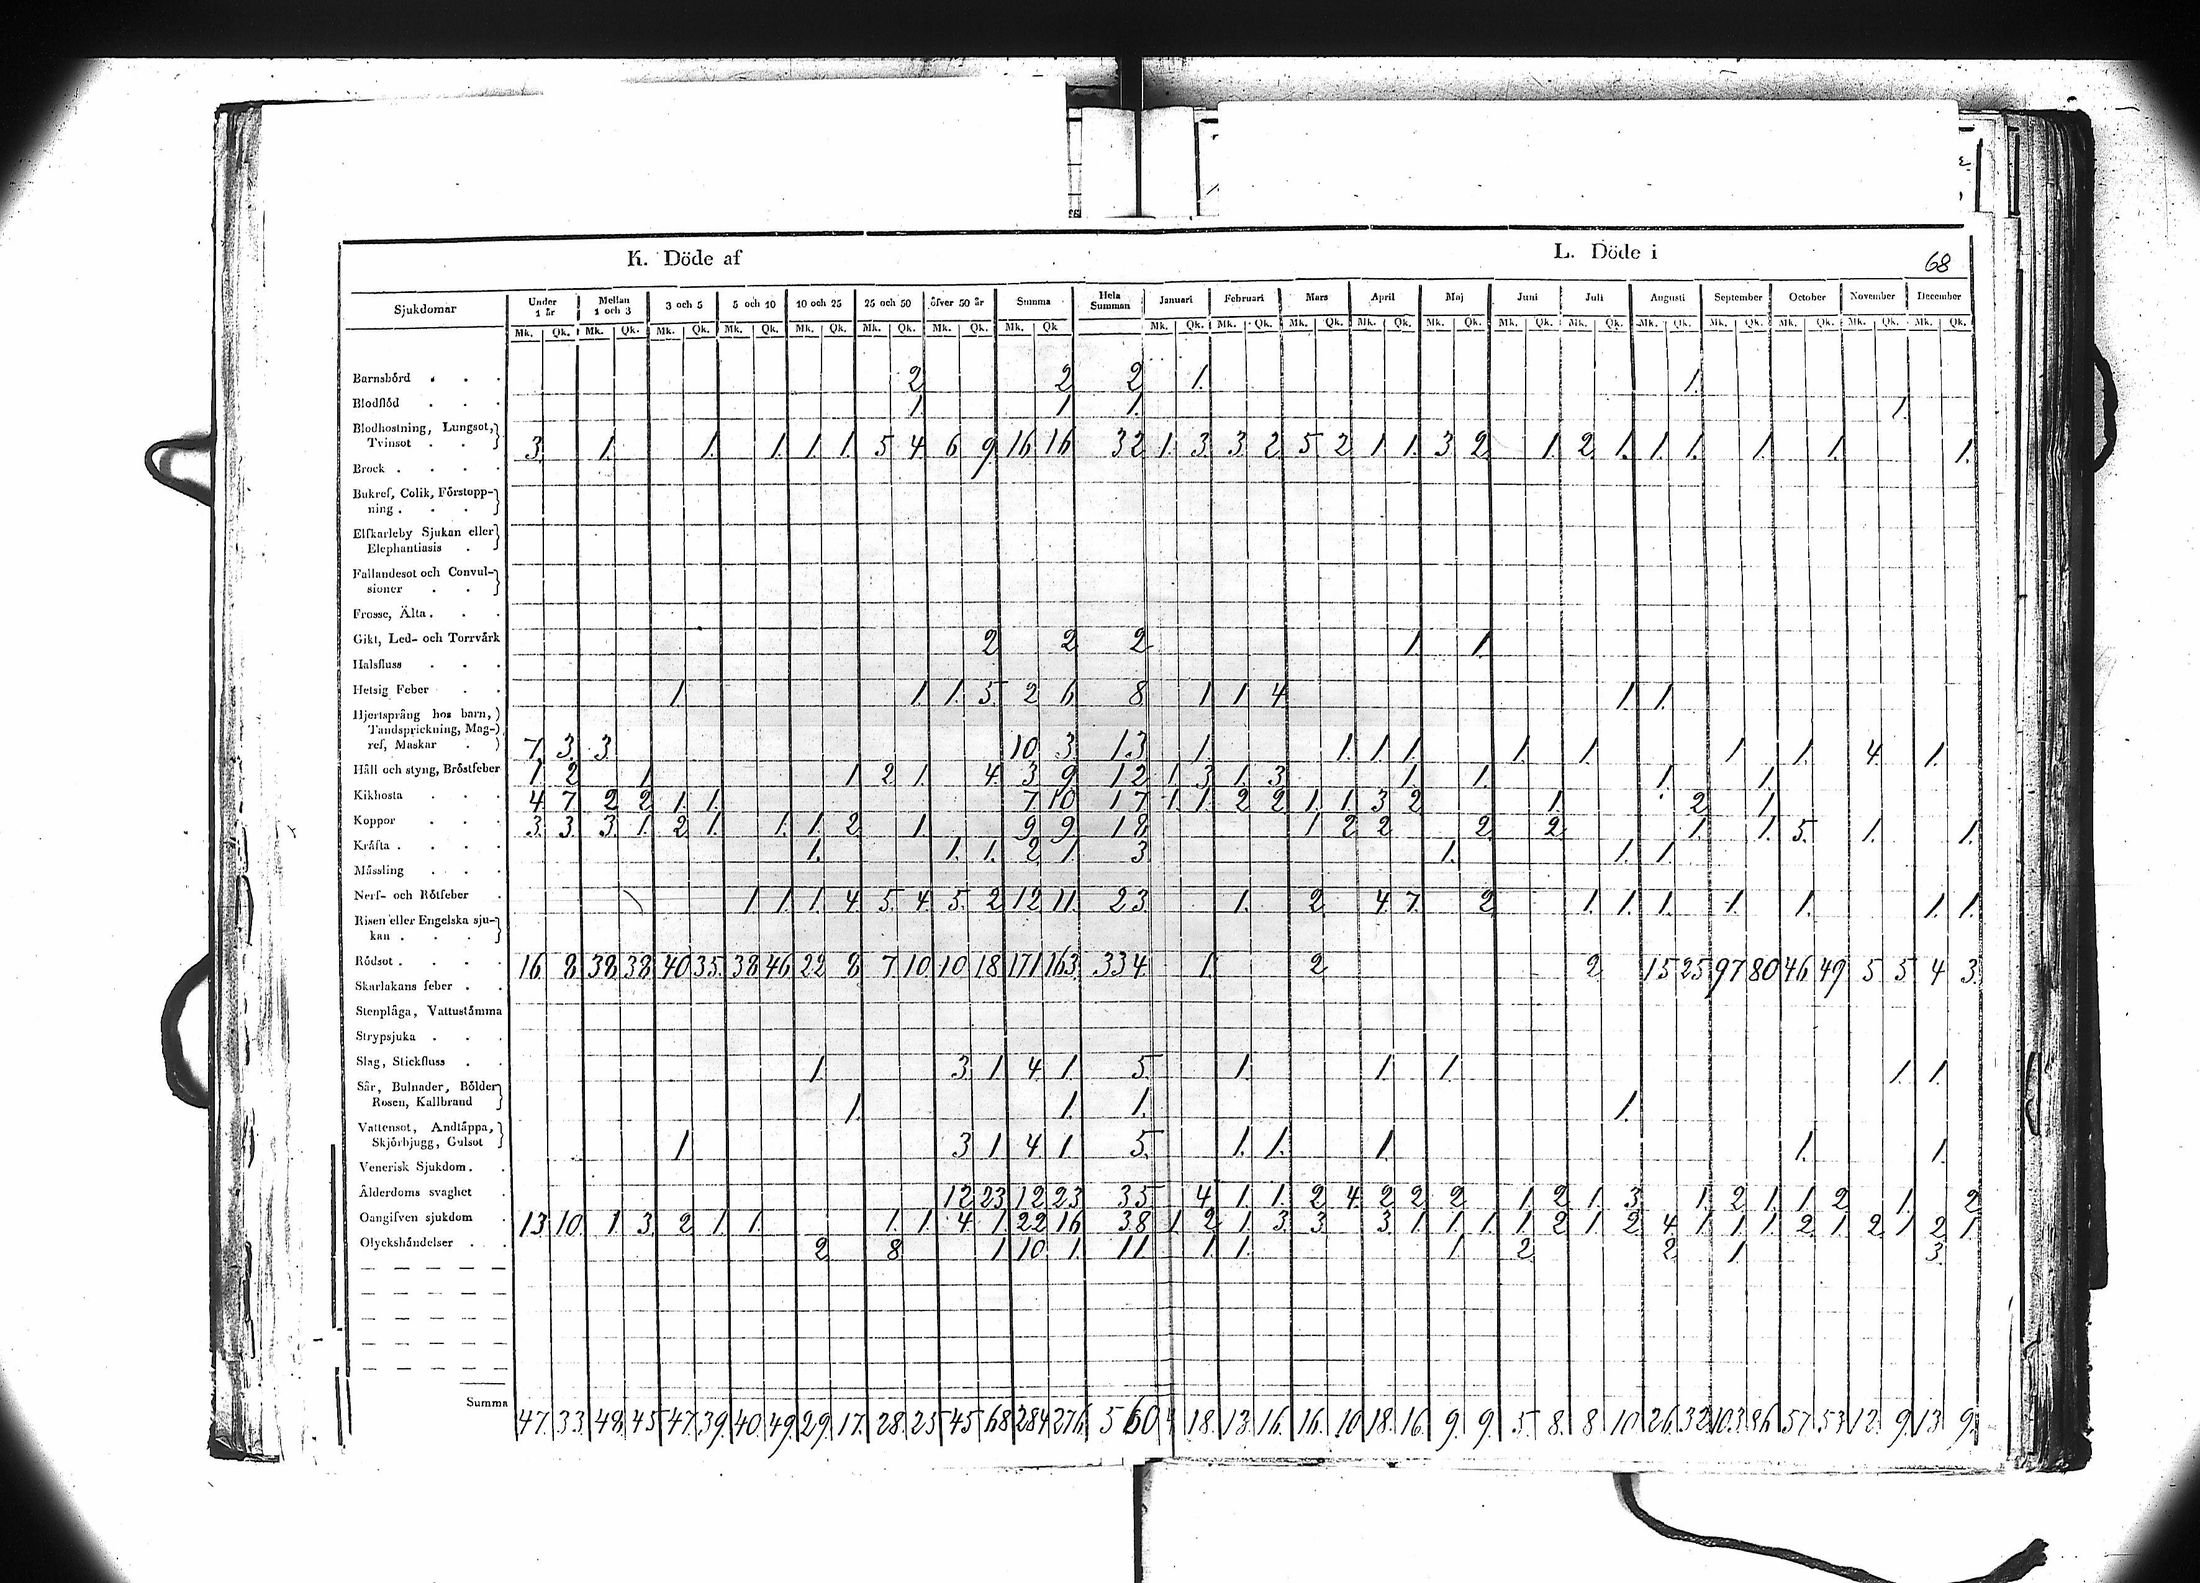 K. Döde af L. Döde i 68
Sjukdomar Under 1 år Mellan 1 och 3 3 och 5 5 och 10 10 och 25 25 och 50 öfver 50 år Summa Hela Summan Januari Februari Mars April Maj Juni Juli Augusti September October November December
Mk. Qk. Mk. Qk. Mk. Qk. Mk. Qk. Mk. Qk. Mk. Qk. Mk. Qk. Mk. Qk Mk. Qk. Mk. Qk. Mk. Qk. Mk. Qk. Mk. Qk. Mk. Qk. Mk. Qk. Mk. Qk. Mk. Qk. Mk. Qk. Mk. Qk. Mk. Qk.
Barnsbörd . . . 2 2 2 1. 1.
Blodflöd . . . 1. 1 1. 1.
Blodhostning, Lungsot,
Tvinsot . . 3. 1. 1. 1. 1. 1. 5 4 6 9. 16 16 32 1. 3 3 2 5 2 1 1. 3 2 1. 2 1. 1. 1. 1. 1. 1.
Brock . . . .
Bukref, Colik, Förstopp-
ning . . .
Elfkarleby Sjukan eller
Elephantiasis .
Fallandesot och Convul-
sioner . .
Frosse, Älta . . .
Gikt, Led- och Torrvärk 2 2 2 1 1.
Halsfluss . . .
Hetsig Feber . . 1 1. 1. 5. 2 6 8 1 1 4 1. 1.
Hjertsprång hos barn,
Tandsprickning, Mag-
ref, Maskar . 7. 3. 3. 10 3 13 1. 1. 1. 1. 1. 1. 1. 1. 4. 1.
Håll och styng, Bröstfeber 1. 2 1 1 2 1. 4. 3 9 12 1 3 1. 3 1. 1. 1. 1.
Kikhosta . . . 4 7 2 2 1. 1. 7 10 17 1. 1. 2 2 1. 1. 3 2 1. 2 1.
Koppor . . . 3. 3 3 1. 2 1. 1. 1. 2 1. 9 9 18 1 2 2 2 2 1. 1. 5. 1. 1.
Kräfta . . . . 1. 1. 1. 2 1. 3 1. 1. 1.
Mässling . . .
Nerf- och Rötfeber . 1 1. 1. 4 5. 4 5. 2 12 11. 23 1. 2 4 7. 2 1. 1. 1. 1. 1. 1. 1.
Risen eller Engelska sju-
kan . . .
Rödsot . . . . 16 8 38 38 40 35. 38 46 22 8 7 10 10 18 171 163. 334. 1. 2 2 15 25 97 80 46 49 5 5 4 3.
Skarlakans feber . .
Stenplåga, Vattustämma
Strypsjuka . . .
Slag, Stickfluss . . 1. 3 1 4 1. 5. 1. 1. 1. 1. 1.
Sår, Bulnader, Bölder
Rosen, Kallbrand 1. 1. 1. 1.
Vattensot, Andtäppa,
Skjörbjugg, Gulsot 1 3 1 4 1. 5. 1. 1. 1. 1. 1.
Venerisk Sjukdom . .
Ålderdoms svaghet . 12 23 12 23 35 4 1. 1. 2 4 2 2 2 1 2 1. 3 1. 2 1. 1. 2 1. 2
Oangifven sjukdom . 13 10. 1 3 2 1. 1. 1. 1. 4 1. 22 16 38 1. 2 1. 3 3 3. 1. 1. 1. 1. 2 1. 2 4 1. 1. 1. 2 1. 2 1 2 1.
Olyckshändelser . . 2 8 1 10 1. 11 1. 1. 1 2 2 1. 3.
Summa 47. 33. 48. 45. 47. 39. 40. 49. 29. 17. 28. 25 45 68 284 276. 560 4 18. 13. 16. 16. 10 18. 16. 9. 9. 5. 8. 8 10 26. 32 103. 86. 57. 53 12. 9. 13 9.